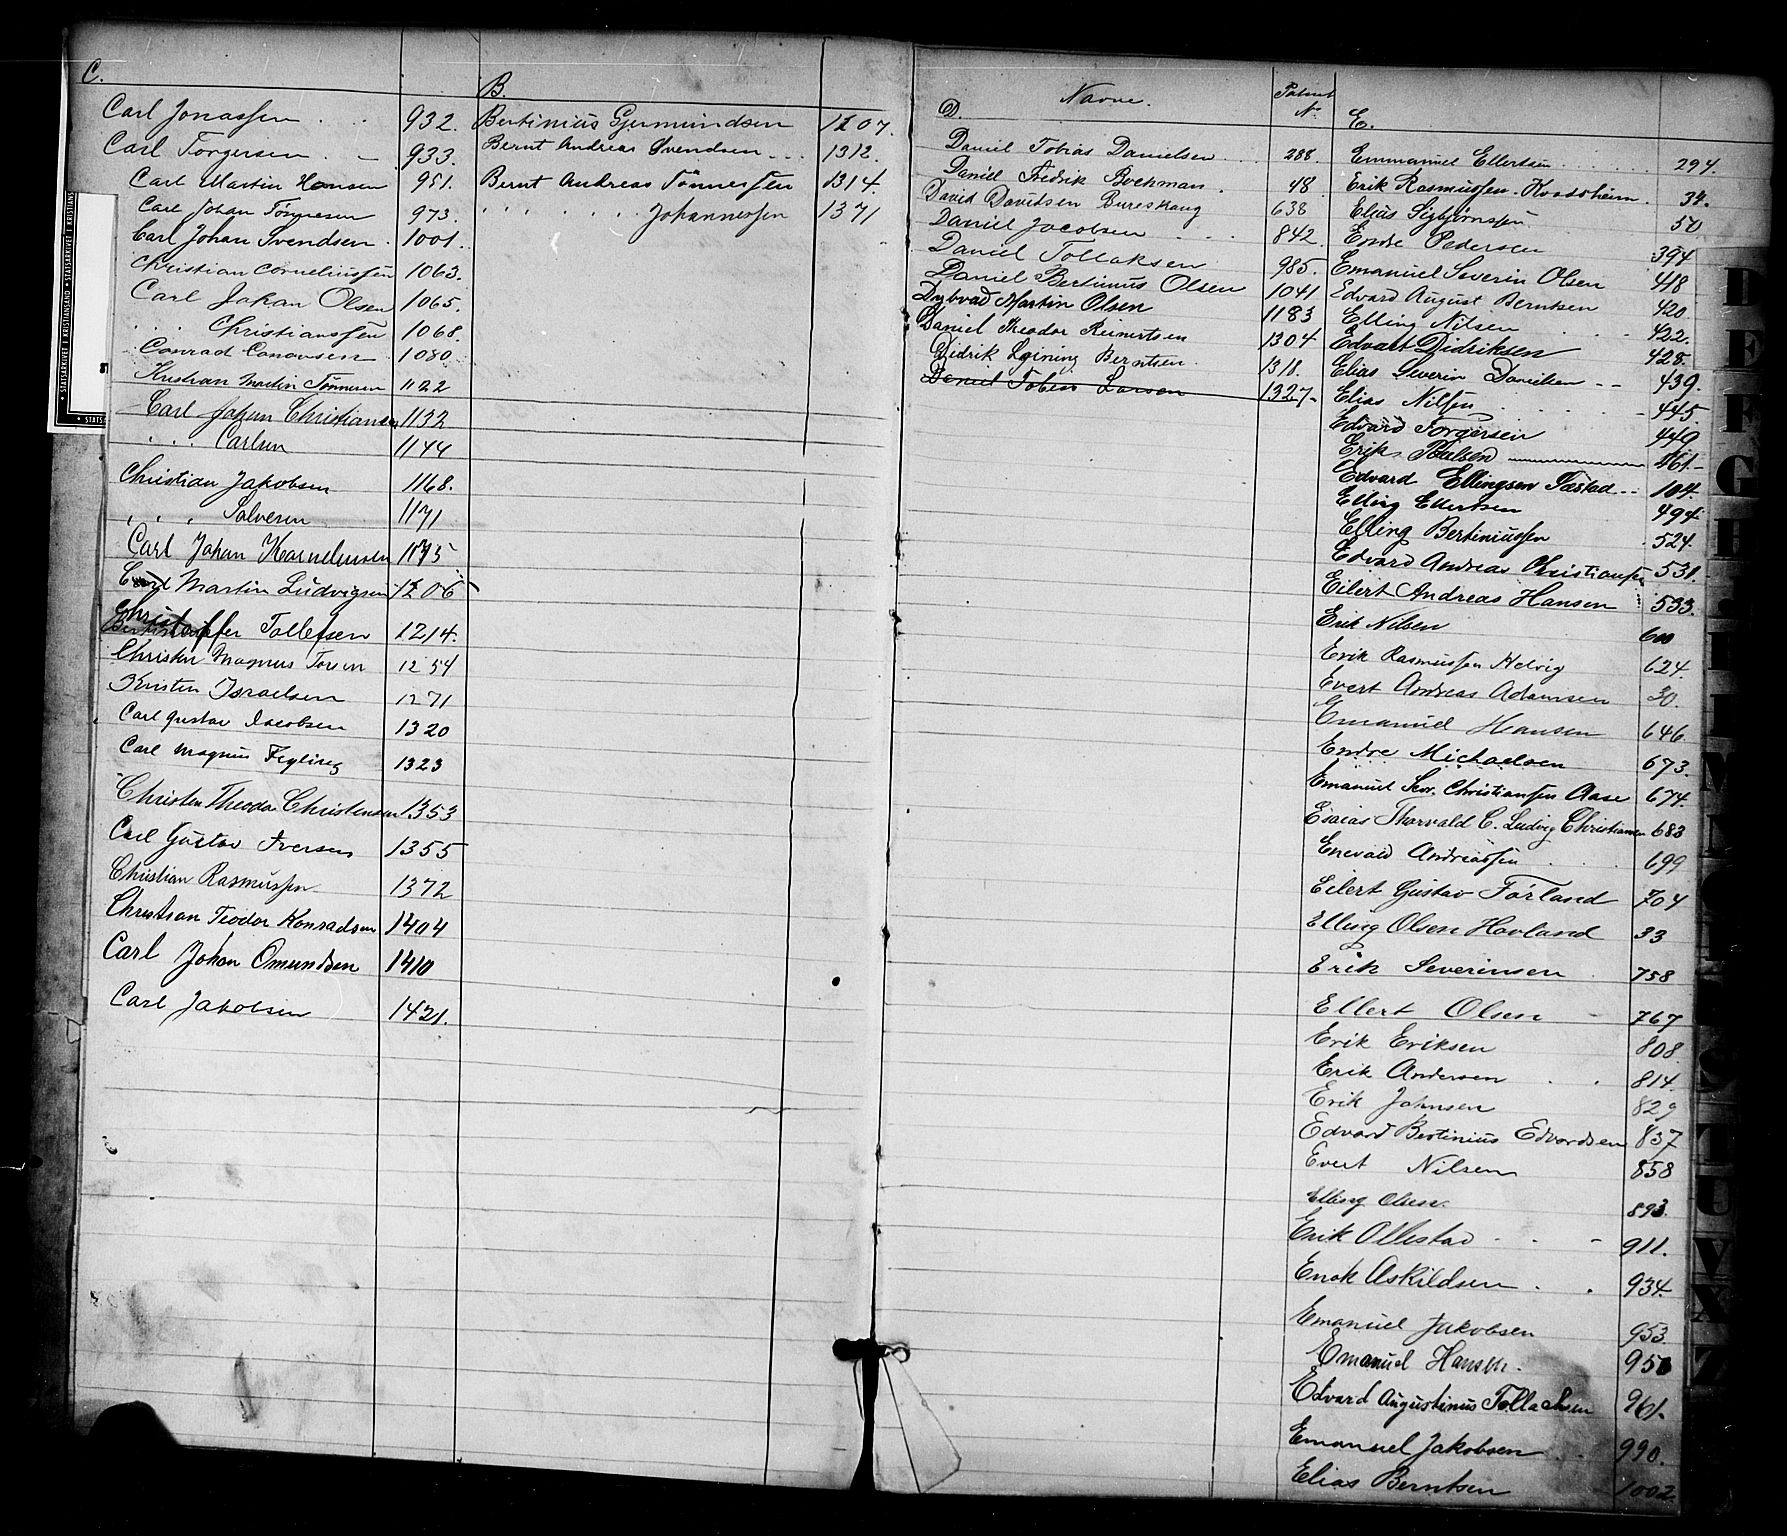 C.
Carl Jonassen 932.
Carl Torgersen 933.
Carl Martin Hansen 951.
Carl Johan Törgresen 973.
Carl Johan Svendsen 1001.
Christian Corneliussen 1063.
Carl Johan Olsen 1065.
" " Christianssen 1068.
Conrad Conarsen 1080
Kristian Martin Tønnesen 1122
Carl Johan Christiansen 1132
" " Carlsen 1144
Christian Jakobsen 1168.
" " Salvesen 1171
Carl Johan Kornelinsen 1175
Carl Martin Ludvigsen 1206
Christoffer Tollefsen 1214.
Christen Magnus Torsen 1254
Kristen Israelsen 1271
Carl Gustav Jacobsen 1320
Carl Magnus 1323
Christen Theodor Christensen 1353
Carl Gustav Iversen 1355
Christian Rasmussen 1372
Christian Teodor Konradsen 1404
Carl Johan Omundsen 1410
Carl Jakobsen 1421.
B.
Bertinius Gjermundsen 1207.
Bernt Andreas Svendsen 1312.
Bernt Andreas Tönnessen 1314.
" " Johannessen 1371
Navne.
Patent No
D.
Daniel Tobias Danielsen 288.
Daniel Fredrik Bockman 48
David Davidsen Bureskaug 638
Daniel Jacobsen 842.
Daniel Tollaksen 985.
Daniel Bertinius Olsen 1041
Dybvad Martin Olsen 1183
Daniel Theodor Reinertsen 1304
Didrik Berntsen 1318.
Daniel Tobias Larsen 1327
E.
Emmanuel Ellertsen 294.
Erik Rasmussen Kvadsheim 34.
Elias Sigbjørnsen 50
Endre Pedersen 394
Emanuel Severin Olsen 418
Edvard August Berntsen 420
Elling Nilsen 422.
Edvart Didriksen 428.
Elias Severin Danielsen 439.
Elias Nilsen 445
Edvard Torgersen 449
Erik Poulsen 461
Edvard Ellingsen Tastad 104.
Elling Ellertsen 494
Elling Bertiniussen 524.
Edvard Andreas Christiansen 531.
Eilert Andreas Hansen 533
Erik Nilsen 600
Erik Rasmussen Helvig 624.
Evert Andreas Adamsen 30.
Emanuel Hansen 646.
Endre Michaelsen 673.
Emanuel Sev. Christiansen Aase 674.
Esaias Thorvald C. Ludvig Christiansen 683
Enevald Andreassen 699
Eilert Gustav Förland 704
Elling Olsen Hovland 33
Erik Severinsen 758
Ellert Olsen 767
Erik Eriksen 808.
Erik Andersen 814.
Erik Johnsen 829
Edvard Bertinius Edvardsen 837
Evert Nilsen 858
Elling Olsen 893.
Erik Ollestad 911.
Enok Askildsen 934.
Emanuel Jakobsen 953.
Emanuel Hansen. 958
Edvard Augustinus Tollacksen 961.
Emanuel Jakobsen 990.
Elias Berntsen 1002.
STATSARKIVET I KRISTIANSAND
D
E
F
G
H